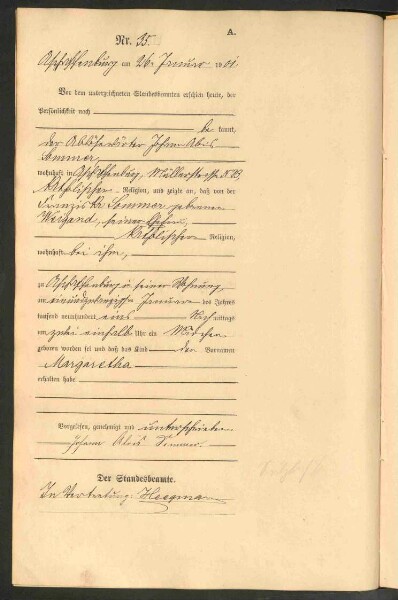 A.
Nr. 35.
Aschaffenburg am 26. Januar 1901.
Vor dem unterzeichneten Standesbeamten erschien heute, der
Persönlichkeit nach
be kannt,
der Johann Alois
Sommer,
wohnhaft in Aschaffenburg, Müllerstraße N. 23
katholischer Religion, und zeigte an, daß von der
Franziska Sommer geborenen
Weigand, seiner Ehefrau,
katholischer Religion,
wohnhaft bei ihm,
zu Aschaffenburg in seiner Wohnung,
am einundzwanzigsten Januar des Jahres
tausend neunhundert eins Nach mittags
um zwei einhalb Uhr ein Mädchen
geboren worden sei und daß das Kind den Vornamen
Margaretha
erhalten habe
Vorgelesen, genehmigt und unterschrieben
Johann Alois Sommer.
Der Standesbeamte.
In Vertretung: